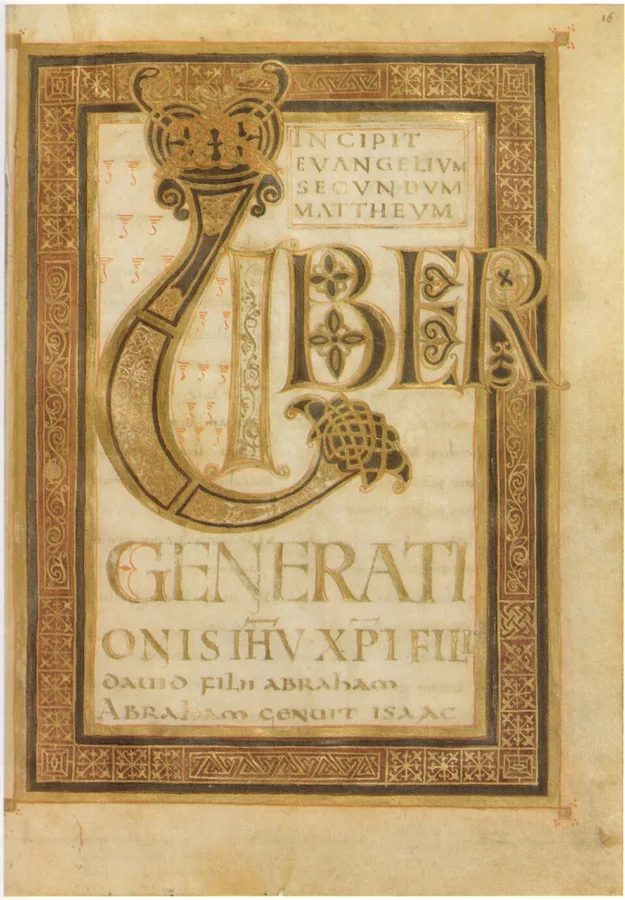 16
INCIPIT
EVANGELIVM
SECVNDVM
MATTHEVM
LIBER
GENERATI
ONIS IHV XPI FILII
DAUID FILII ABRAHAM
ABRAHAM GENUIT ISAAC